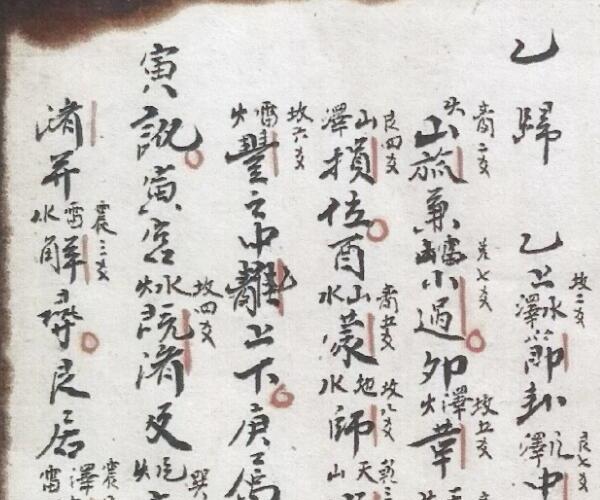 乙歸 乙上水澤節坎二爻卦
火山旅离二爻兼雷山小過七爻卯澤火革坎五爻
山澤損艮四爻位酉山水蒙离五爻地水師坎八爻天山
雷火豐坎六爻之中離上下庚
寅訊寅宮水火既濟坎四爻
濟并雷水解震三爻艮居澤雷震